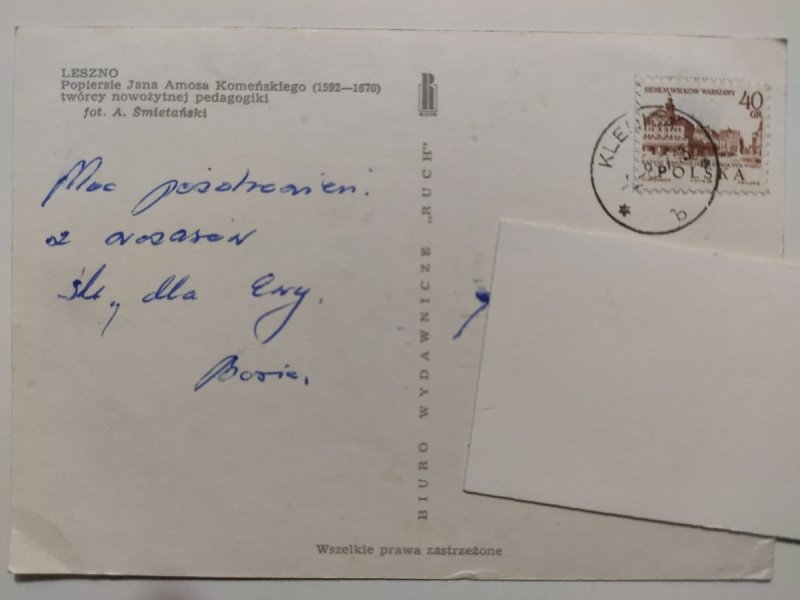 LESZNO
Popiersie Jana Amosa Komeńskiego (1592—1670)
twórcy nowożytnej pedagogiki
fot. A. Śmietański
RUCH
SIEDEM WIEKÓW WARSZAWY
40
GR
POLSKA
KLE
b
Moc pozdrowień
z wczasów
śle, dla Ewy.
Basia.
BIURO WYDAWNICZE „RUCH"
Wszelkie prawa zastrzeżone